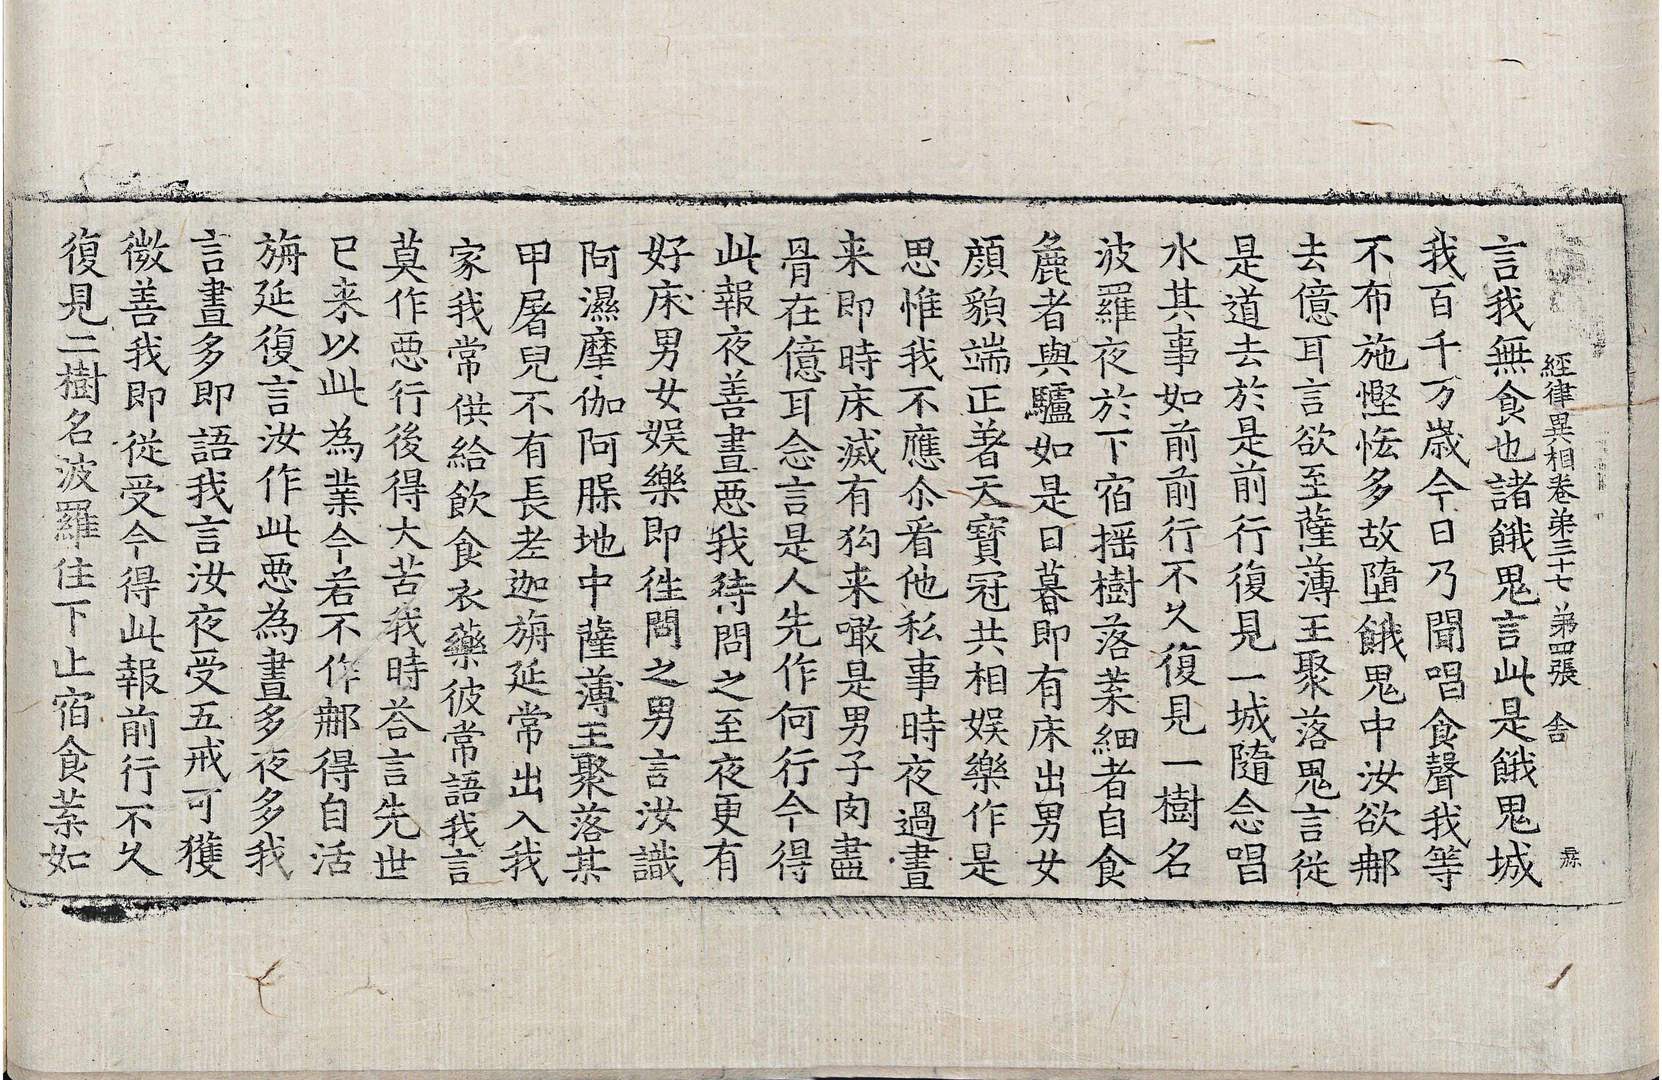 經律異相卷第三十七 第四張 舍
言我無食也諸餓鬼言此是餓鬼城
我百千万歳今日乃聞唱食聲我等
不布施慳悋多故墮餓鬼中汝欲郍
去億耳言欲至薩薄王聚落鬼言從
是道去於是前行復見一城隨念唱
水其事如前前行不久復見一樹名
波羅夜於下宿揺樹落葉細者自食
麁者與驢如是日暮即有床出男女
顔貌端正著天寶冠共相娛樂作是
思惟我不應尒看他私事時夜過晝
来即時床滅有狗来噉是男子肉盡
骨在億耳念言是人先作何行今得
此報夜善晝惡我待問之至夜更有
好床男女娛樂即徃問之男言汝識
阿濕摩伽阿䐗地中薩薄王聚落某
甲屠兒不有長老迦旃延常出入我
家我常供給飲食衣藥彼常語我言
莫作惡行後得大苦我時荅言先世
已来以此為業今若不作郍得自活
旃延復言汝作此惡為晝多夜多我
言晝多即語我言汝夜受五戒可獲
微善我即從受今得此報前行不久
復見二樹名波羅住下止宿食葉如